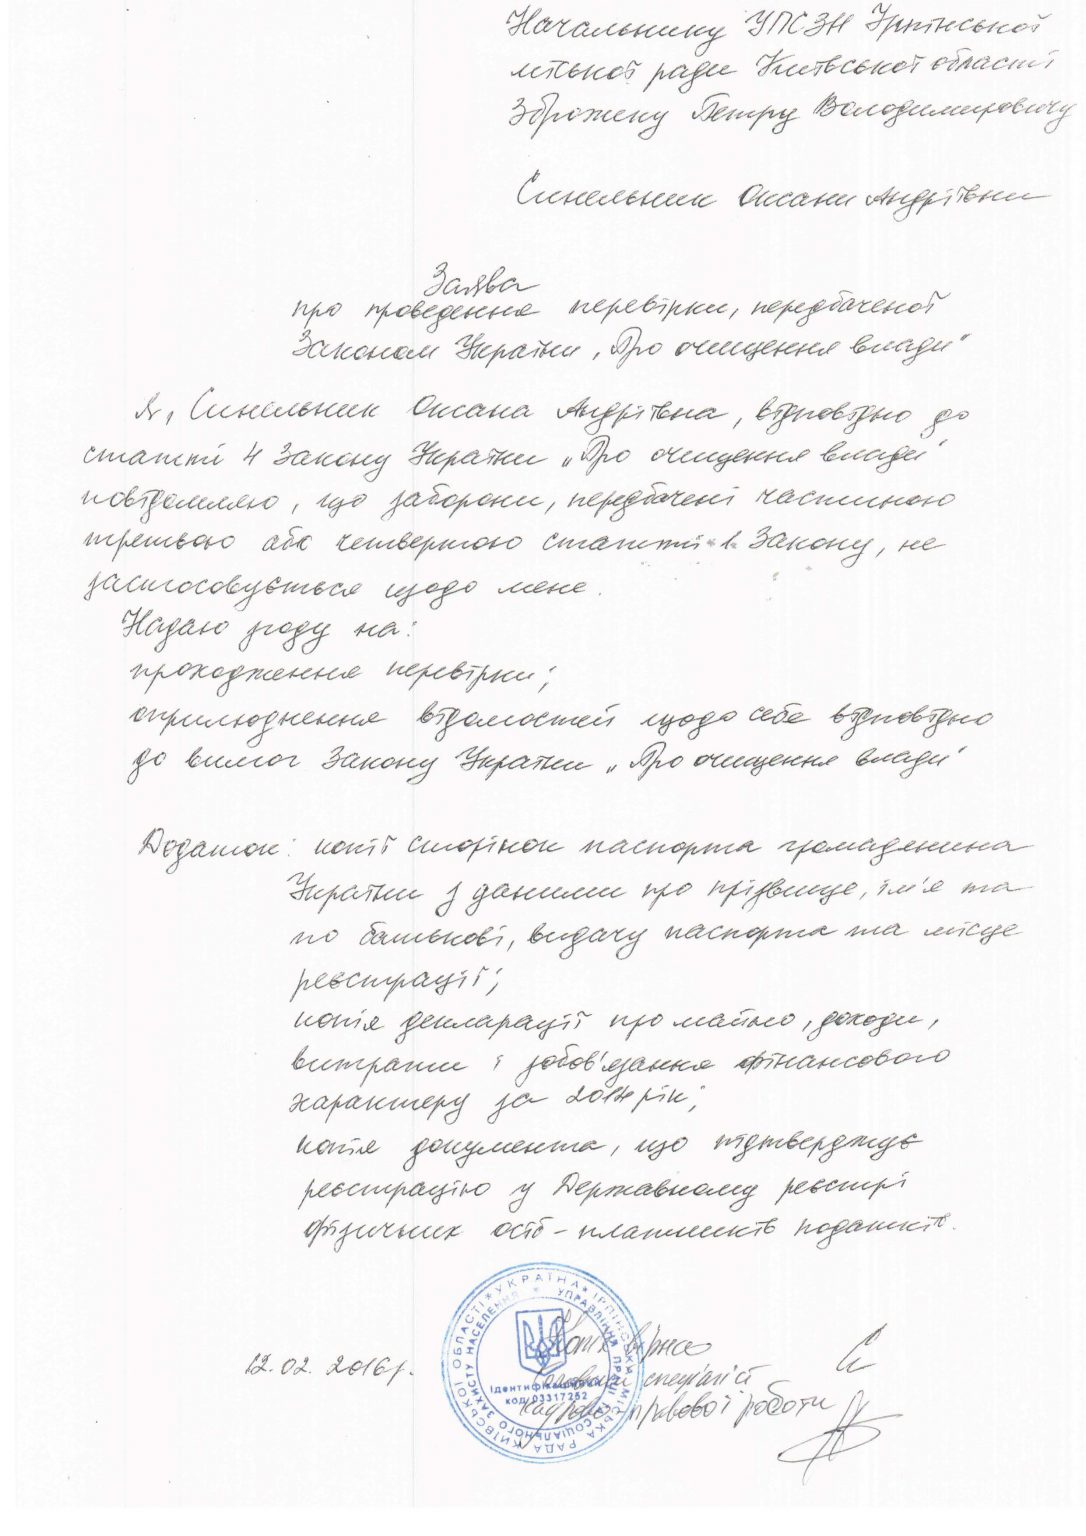 Начальнику УПСЗН Ірпінської
міської ради Київської області
Зброжеку Петру Володимировичу
Синельник Оксани Андріївни
Заява
про проведення перевірки, передбаченої
Законом України „Про очищення влади"
Я, Синельник Оксана Андріївна, відповідно до
статті 4 Закону України „Про очищення влади"
повідомляю, що заборони, передбачені частиною
третьою або четвертою статті 1 Закону, не
застосовується щодо мене.
Надаю згоду на:
проходження перевірки;
оприлюднення відомостей щодо себе відповідно
до вимог Закону України „Про очищення влади"
Додаток: копії сторінок паспорта громадянина
України з даними про прізвище, ім'я та
по батькові, видачу паспорта та місце
реєстрації;
копія декларації про майно, доходи,
витрати і зобов'язання фінансового
характеру за 2014 рік;
копія документа, що підтверджує
реєстрацію у Державному реєстрі
фізичних осіб - платників податків.
12.02.2016 р.
Копія вірна
Головний спеціаліст
кадрово-правової роботи
* УКРАЇНА * ІРПІНСЬКА МІСЬКА РАДА КИЇВСЬКОЇ ОБЛАСТІ
* УПРАВЛІННЯ ПРАЦІ ТА СОЦІАЛЬНОГО ЗАХИСТУ НАСЕЛЕННЯ
Ідентифікаційний
код 03317252